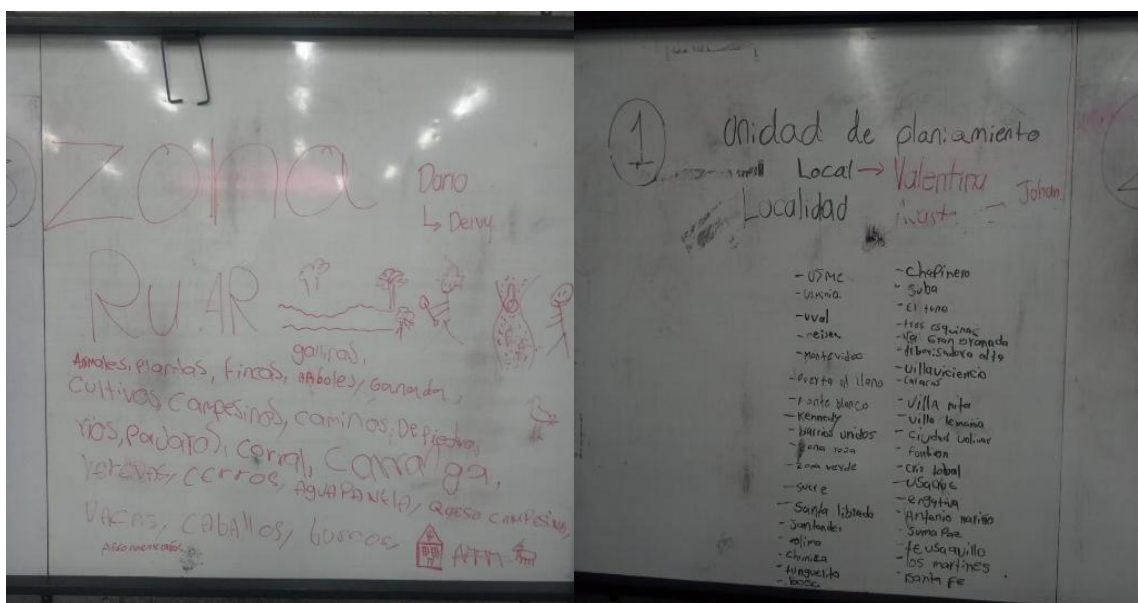 zona
Dario
↳ Deivy
RU AR
gallinas,
Animales, plantas, Fincas, arboles, Ganado,
Cultivos, Campesinos, caminos, De piedra,
rios, Pajaros, corral, Carranga,
veredas, cerros, AGUAPANELA, queso campesino,
VACAS, CABAllos, burros,
1
Unidad de planiamiento
Local → Valentina
Johan
Localidad
- USME
- uval
- Montevideo
- Puerta al llano
- Kennedy
- barrios unidos
- zona rosa
- zona verde
- sucre
- Santa librada
- Santander
- tunguelito
- bosa
- Chapinero
- Suba
- El tuno
- tres esquinas
- La Gran Granada
- Arborisadora alta
- Villaviciencio
- Caracas
- Villa rita
- Ciudad bolivar
- fontibon
- Cris tobal
- engativa
- Antonio nariño
- Suma Paz
- teusaquillo
- los martines
- santa Fe